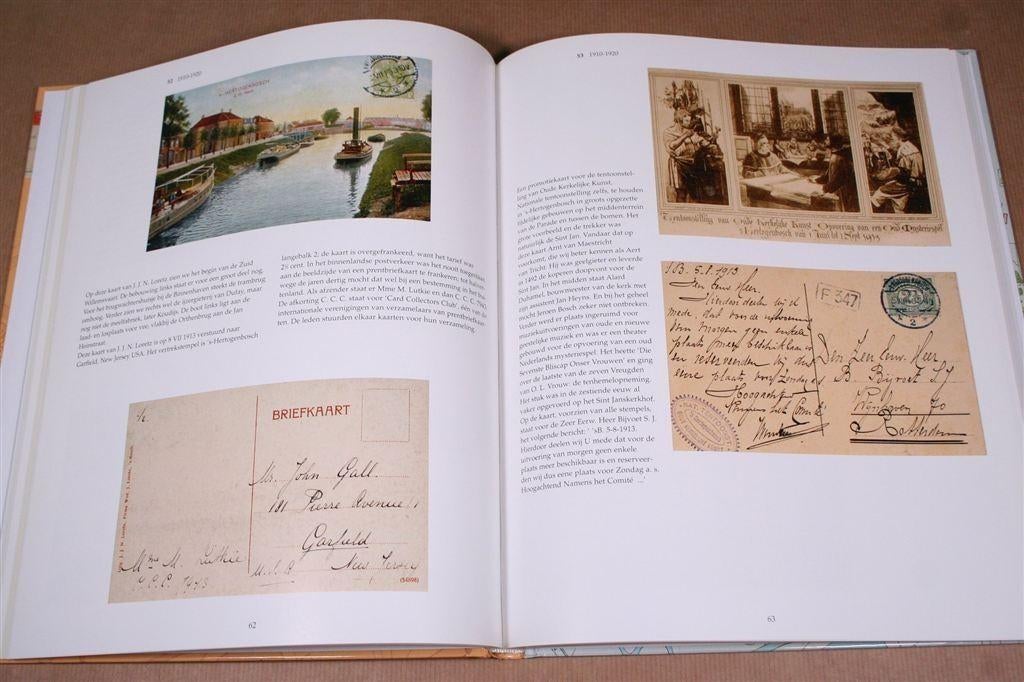 52 1910-1920
's-HERTOGENBOSCH
Op deze kaart van J. J. N. Loretz zien we het begin van de Zuid
Willemsvaart. De bebouwing links staat er voor een groot deel nog.
Voor het brugwachtershuisje bij de Binnenhaven steekt de trambrug
omhoog. Verder zien we rechts wel de ijzergieterij van Dufay, maar
nog niet de zwelfabriek, later Koudijs. De boot links ligt aan de
laad- en losplaats voor vee, vlakbij de Orthenbrug aan de Jan
Heinstraat.
Deze kaart van J. J. N. Loretz is op 8 VII 1913 verstuurd naar
Garfield, New Jersey USA. Het vertrekstempel is 's-Hertogenbosch
langebalk 2; de kaart is overgefrankeerd, want het tarief was
2½ cent. In het binnenlandse postverkeer was het nooit toegestaan
aan de beeldzijde van een prentbriefkaart te frankeren; tot halver-
wege de jaren dertig mocht dat wel bij een bestemming in het bui-
tenland. Als afzender staat er Mme M. Lutkie en dan C. C. C. 7943.
De afkorting C. C. C. staat voor 'Card Collectors Club', een van de
internationale verenigingen van verzamelaars van prentbriefkaar-
ten. De leden stuurden elkaar kaarten voor hun verzameling.
BRIEFKAART
Mr. John Gall.
181 Pierre Avenue
Garfield
New Jersey
U.S.A
Mme M. Lutkie
C.C.C. 7943
(54898)
62
53 1910-1920
Een promotiekaart voor de tentoonstel-
ling van Oude Kerkelijke Kunst.
Nationale tentoonstelling zelfs, te houden
in 's-Hertogenbosch in groots opgezette
tijdelijke gebouwen op het middenterrein
van de Parade en tussen de bomen. Het
grote voorbeeld en de trekker was
natuurlijk de Sint Jan. Vandaar dat op
deze kaart Arnt van Maestricht
of van Tricht. Hij was geelgieter en leverde
in 1492 de koperen doopvont voor de
Sint Jan. In het midden staat Alard
Duhamel, bouwmeester van de kerk met
zijn assistent Jan Heyns. En bij het geheel
mocht Jeroen Bosch zeker niet ontbreken.
Verder werd er plaats ingeruimd voor
muziekuitvoeringen van oude en nieuwe
geestelijke muziek en was er een theater
gebouwd voor de opvoering van een oud
Nederlands mysteriespel. Het heette 'Die
Sevenste Bliscap Onser Vrouwen' en ging
over de laatste van de zeven Vreugden
van O. L. Vrouw: de tenhemelopneming.
Het stuk was in de zestiende eeuw al
vaker opgevoerd op het Sint Janskerkhof.
Op de kaart, voorzien van alle stempels,
staat voor de Zeer Eerw. Heer Bijvoet S. J.
het volgende bericht: ' 'sB. 5-8-1913.
Hierdoor deelen wij U mede dat voor de
uitvoering van morgen geen enkele
plaats meer beschikbaar is en reserveer-
den wij dus eene plaats voor Zondag a. s.
Hoogachtend Namens het Comité ...'
Tentoonstelling van Oude Kerkelijke Kunst Opvoering van een Oud Mysteriespel
's Hertogenbosch van 1 Juni tot 1 Sept 1913
'sB. 5.8.1913
Zeer Eerw. Heer
Hierdoor deelen wij U
mede, dat voor de uitvoering
van morgen geen enkele
plaats meer beschikbaar is
en reserveerden wij dus
eene plaats voor Zondag a.s.
Hoogachtend
Namens het Comité
F 347
2
Den Zeer Eerw. Heer
B. Bijvoet S.J.
Wijnhaven 70
Rotterdam
63